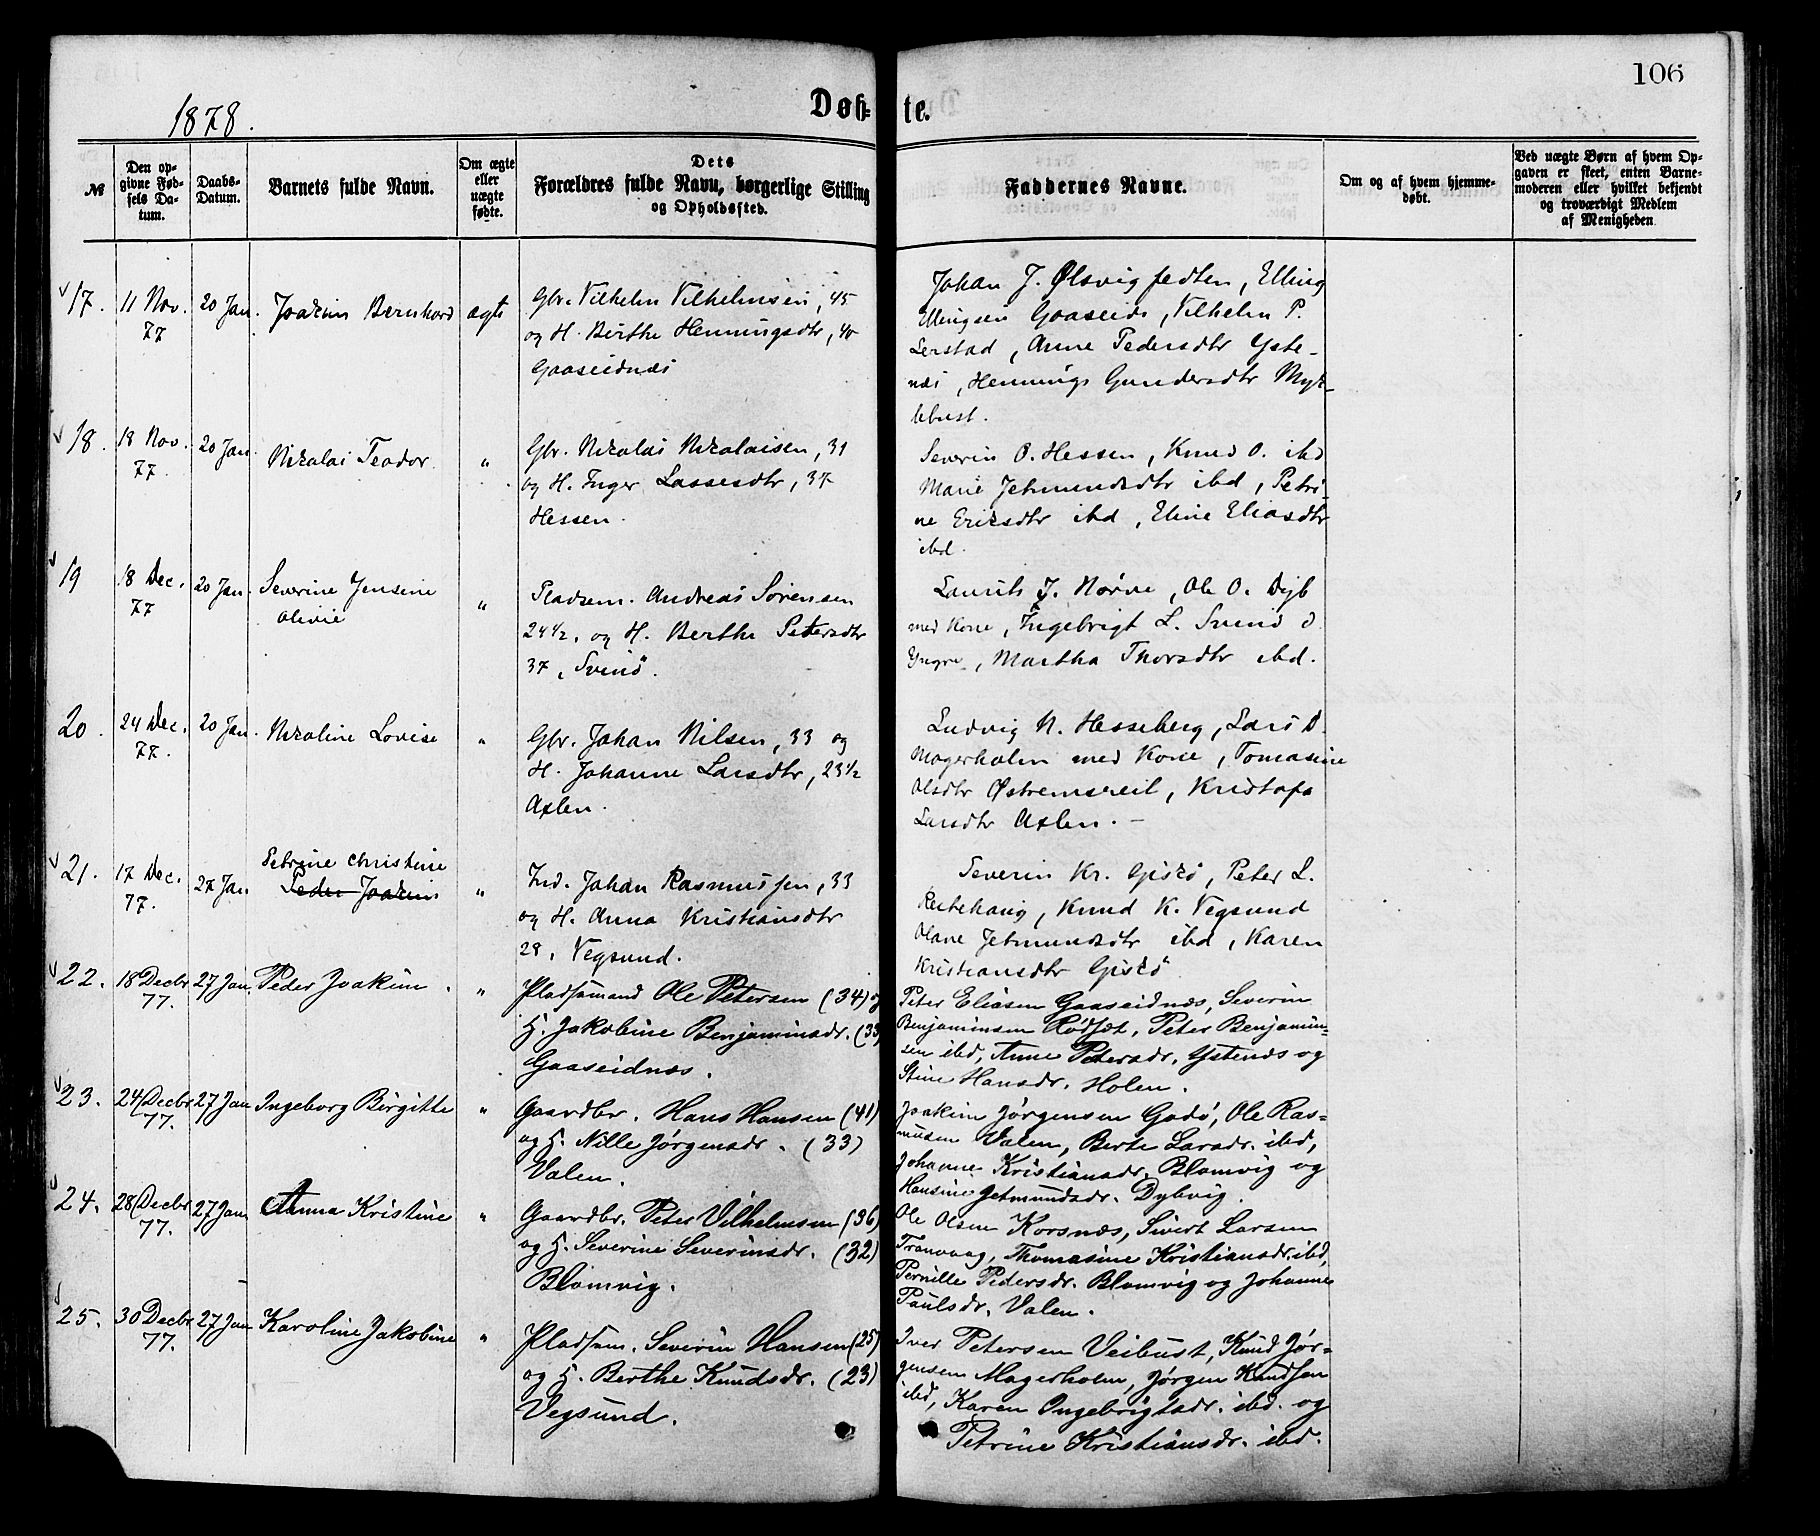 106
1878.
Døb-
te.
№
Den op-
givne Fød-
sels Da-
tum.
Daabs-
Datum.
Barnets fulde Navn.
Om ægte
eller
uægte
fødte.
Dets
Forældres fulde Navn, borgerlige Stilling
og Opholdssted.
Faddernes Navne.
Om og af hvem hjemme-
døbt.
Ved uægte Børn af hvem Op-
gaven er skeet, enten Barne-
moderen eller hvilket bekjendt
og troværdigt Medlem
af Menigheden
17. 11 Nov. 77 20 Jan. Joakim Bernhard ægte
Gbr. Vilhelm Vilhelmsen, 45
og H. Berthe Henningsdtr, 40
Gaaseidnæs
Johan J. Ølsvigfedten, Elling
Ellingsen Gaaseide, Vilhelm P.
Lerstad, Anne Pedersdtr Yste-
næs, Hennings Gundersdtr Myk-
lebust.
18. 18 Nov. 77 20 Jan. Nikolai Teodor "
Gbr. Nikolai Nikolaisen, 31
og H. Inger Lassesdtr, 37
Hessen.
Severin O. Hessen, Knud O. ibd
Marie Jetmundsdtr ibd, Petri-
ne Eriksdtr ibd, Eline Eliasdtr
ibd.
19 18 Dec. 77 20 Jan. Severine Jensine
Olivie "
Pladsem. Andreas Sørensen
24½, og H. Berthe Petersdtr
37, Svinø.
Laurits J. Nørve, Ole O. Dyb
med Kone, Ingebrigt L. Svinø d.
Yngre, Martha Thorsdtr ibd.
20. 24 Dec. 77. 20 Jan. Nikoline Lovise "
Gbr. Johan Nilsen, 33 og
H. Johanne Larsdtr, 23½
Axlen.
Ludvig N. Hesseberg, Lars D.
Magerholm med Kone, Tomasine
Olsdtr Østremsreit, Kristofa
Larsdtr Axlen. —
21. 17 Dec. 77. 27 Jan. Petrine Christine
Peder Joakim "
Ind. Johan Rasmussen, 33
og H. Anna Kristiansdtr
28, Vegsund.
Severin Kr. Giskø, Peter L.
Reitehaug, Knud K. Vegsund
Olane Jetmundsdtr ibd, Karen
Kristiansdtr Giskø
22. 18 Decbr 77. 27 Jan. Peder Joakim. "
Pladsmand Ole Petersen (34) og
H. Jakobine Benjaminsdr. (33)
Gaaseidnæs.
Peter Eliasen Gaaseidnæs, Severin
Benjaminsen Rødset, Peter Benjamin-
sen ibd, Anne Petersdr. Ystenæs og
Stine Hansdr. Holen.
23. 24 Decbr 77. 27 Jan Ingeborg Birgitte "
Gaardbr. Hans Hansen (41)
og H. Nille Jørgensdr. (33)
Valen.
Joakim Jørgensen Godø, Ole Ras-
musen Valen, Berte Larsdr. ibd,
Johanne Kristiansdr. Blomvig og
Hansine Jetmundsdr. Dybvig.
24. 28 Decbr 77. 27 Jan Anna Kristine "
Gaardbr. Peter Vilhelmsen (36)
og H. Severine Severinsdr. (32)
Blomvig.
Ole Olsen Korsnæs, Sivert Larsen
Tranvaag, Thomasine Kristiansdr. ibd,
Pernille Pedersdr. Blomvig og Johanne
Paulsdr. Valen.
25. 30 Decbr 77. 27 Jan Karoline Jakobine "
Pladsm. Severin Hansen (25)
og H. Berthe Knudsdr. (23)
Vegsund.
Iver Petersen Veibust, Knud Jør-
gensen Magerholm, Jørgen Knudsen
ibd, Karen Ongebrigtsdr. ibd. og
Petrine Kristiansdr. ibd.